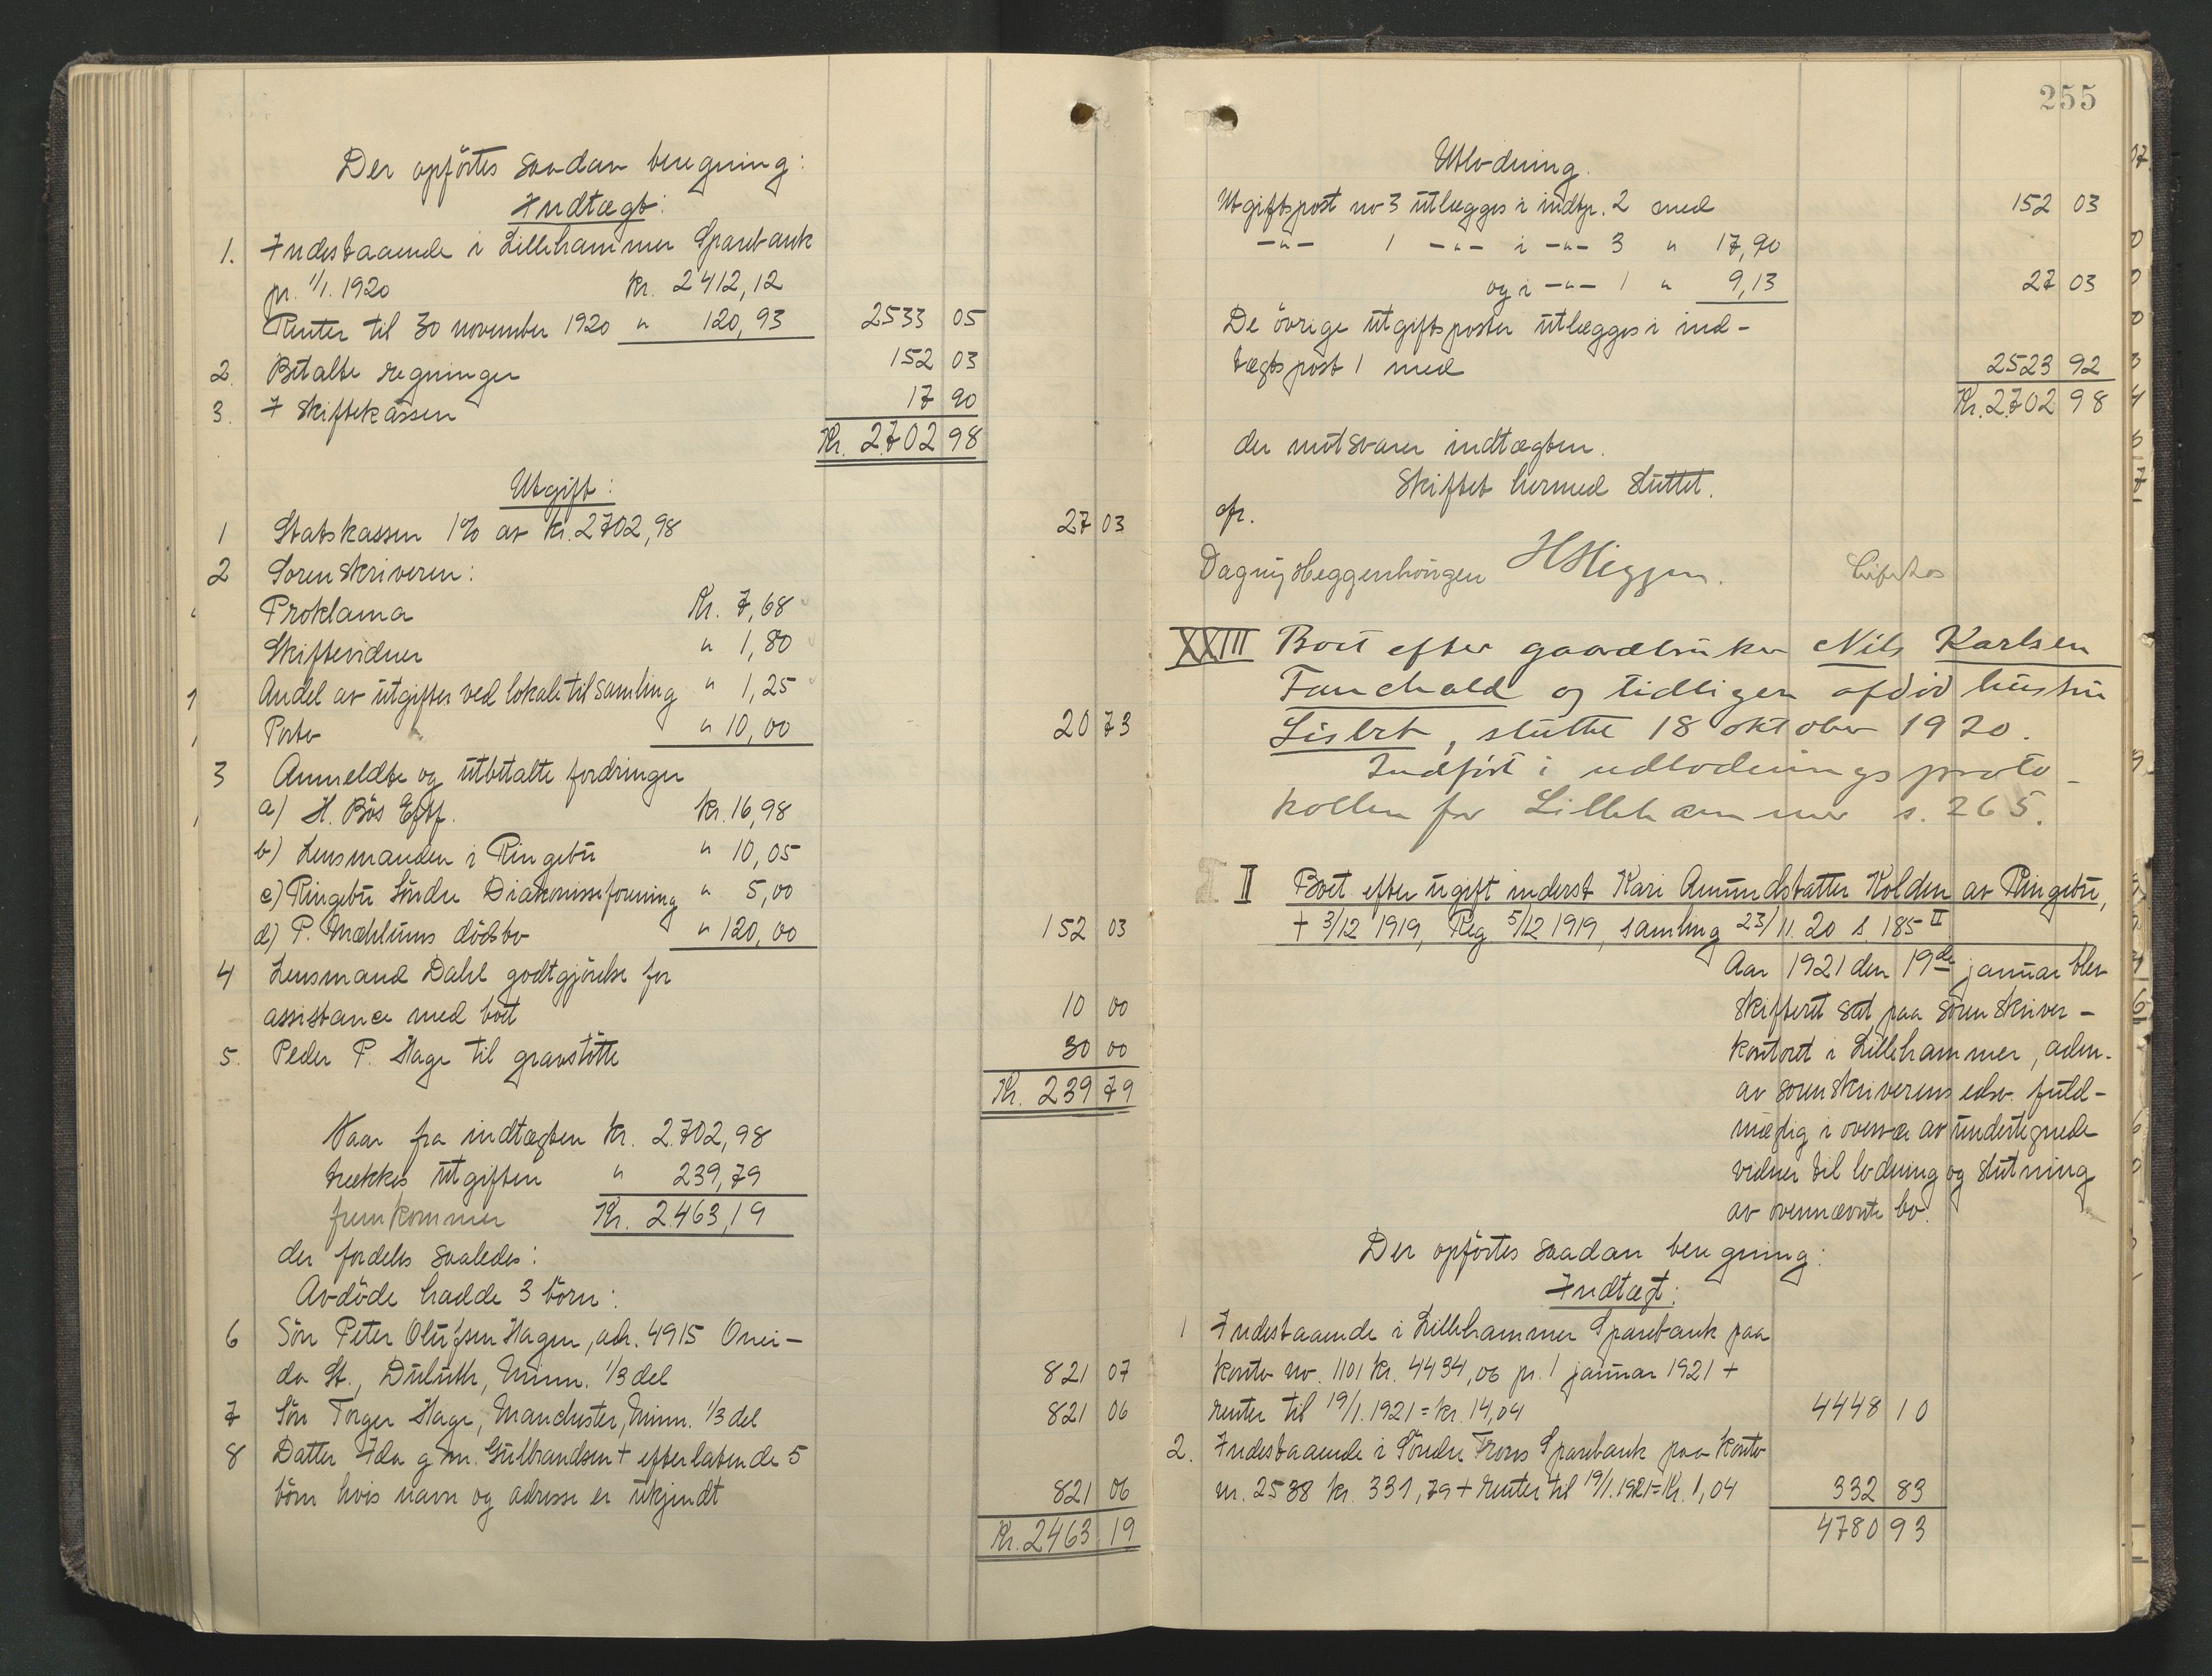 Der opførtes saadan beregning:
Indtægt:
1. Indestaaende i Lillehammer Sparebank
pr. 1/1. 1920 kr. 2412,12
Renter til 30 november 1920 " 120,93 2533 05
2. Betalte regninger 152 03
3. I Skiftekassen 17 90
Kr. 2702 98
Utgift:
1 Statskassen 1% av kr. 2702,98 27 03
2 Sorenskriveren:
Proklama Kr. 7,68
Skiftevidner " 1,80
Andel av utgifter ved lokale til samling " 1,25
Porto " 10,00 20 73
3 Anmeldte og utbetalte fordringer
a) H. Bös Eftf. kr. 16,98
b) Lensmanden i Ringebu " 10,05
c) Ringebu Söndre Diakonisseforening " 5,00
d) P. Mæhlums dödsbo " 120,00 152 03
4 Lensmand Dahl godtgjörelse for
assistance med boet 10 00
5. Peder P. Hage til gravstötte 30 00
Kr. 239 79
Naar fra indtægten kr. 2702,98
trækkes utgiften " 239,79
fremkommer Kr. 2463,19
der fordeles saaledes:
Avdöde hadde 3 börn:
6 Sön Peter Olufsen Hagen, adr. 4915 Onei-
da St., Duluth, Minn. 1/3 del 821 07
7 Sön Torger Hage, Manchester, Minn. 1/3 del 821 06
8 Datter Ida g. m. Gulbrandsen + efterlatende 5
börn hvis navn og adresse er ukjendt 821 06
Kr. 2463 19
255
Utlodning.
Utgiftspost no 3 utlægges i indtp. 2 med 152 03
-"- 1 -"- i -"- 3 " 17,90
og i -"- 1 " 9,13 27 03
De övrige utgiftsposter utlægges i ind-
tægtspost 1 med 2523 92
Kr. 2702 98
der motsvarer indtægten.
Skiftet hermed sluttet.
Dagny Heggenhougen
XXIII Boet efter gaardbruker Nils Karlsen
Fauchald og tidligere afdød hustru
Lisbet, sluttet 18 oktober 1920.
Indført i udlodningsproto-
kollen for Lillehammer s. 265.
II Boet efter ugift inderst Kari Amundsdatter Kolden av Ringebu,
+ 3/12 1919, Reg 5/12 1919, samling 23/11. 20 s. 185 II
Aar 1921 den 19de januar blev
skifteret sat paa sorenskriver-
kontoret i Lillehammer, adm.
av sorenskriverens edsv. fuld-
mægtig i overvær av undertegnede
vidner til lodning og slutning
av ovennævnte bo.
Der opførtes saadan beregning:
Indtægt:
1 Indestaaende i Lillehammer Sparebank paa
konto no. 1101 kr. 4434,06 pr. 1 januar 1921 +
renter til 19/1. 1921 = kr. 14,04 4448 10
2. Indestaaende i Söndre Frons Sparebank paa konto
nr. 2538 kr. 331,79 + renter til 19/1. 1921 = Kr. 1,04 332 83
4780 93